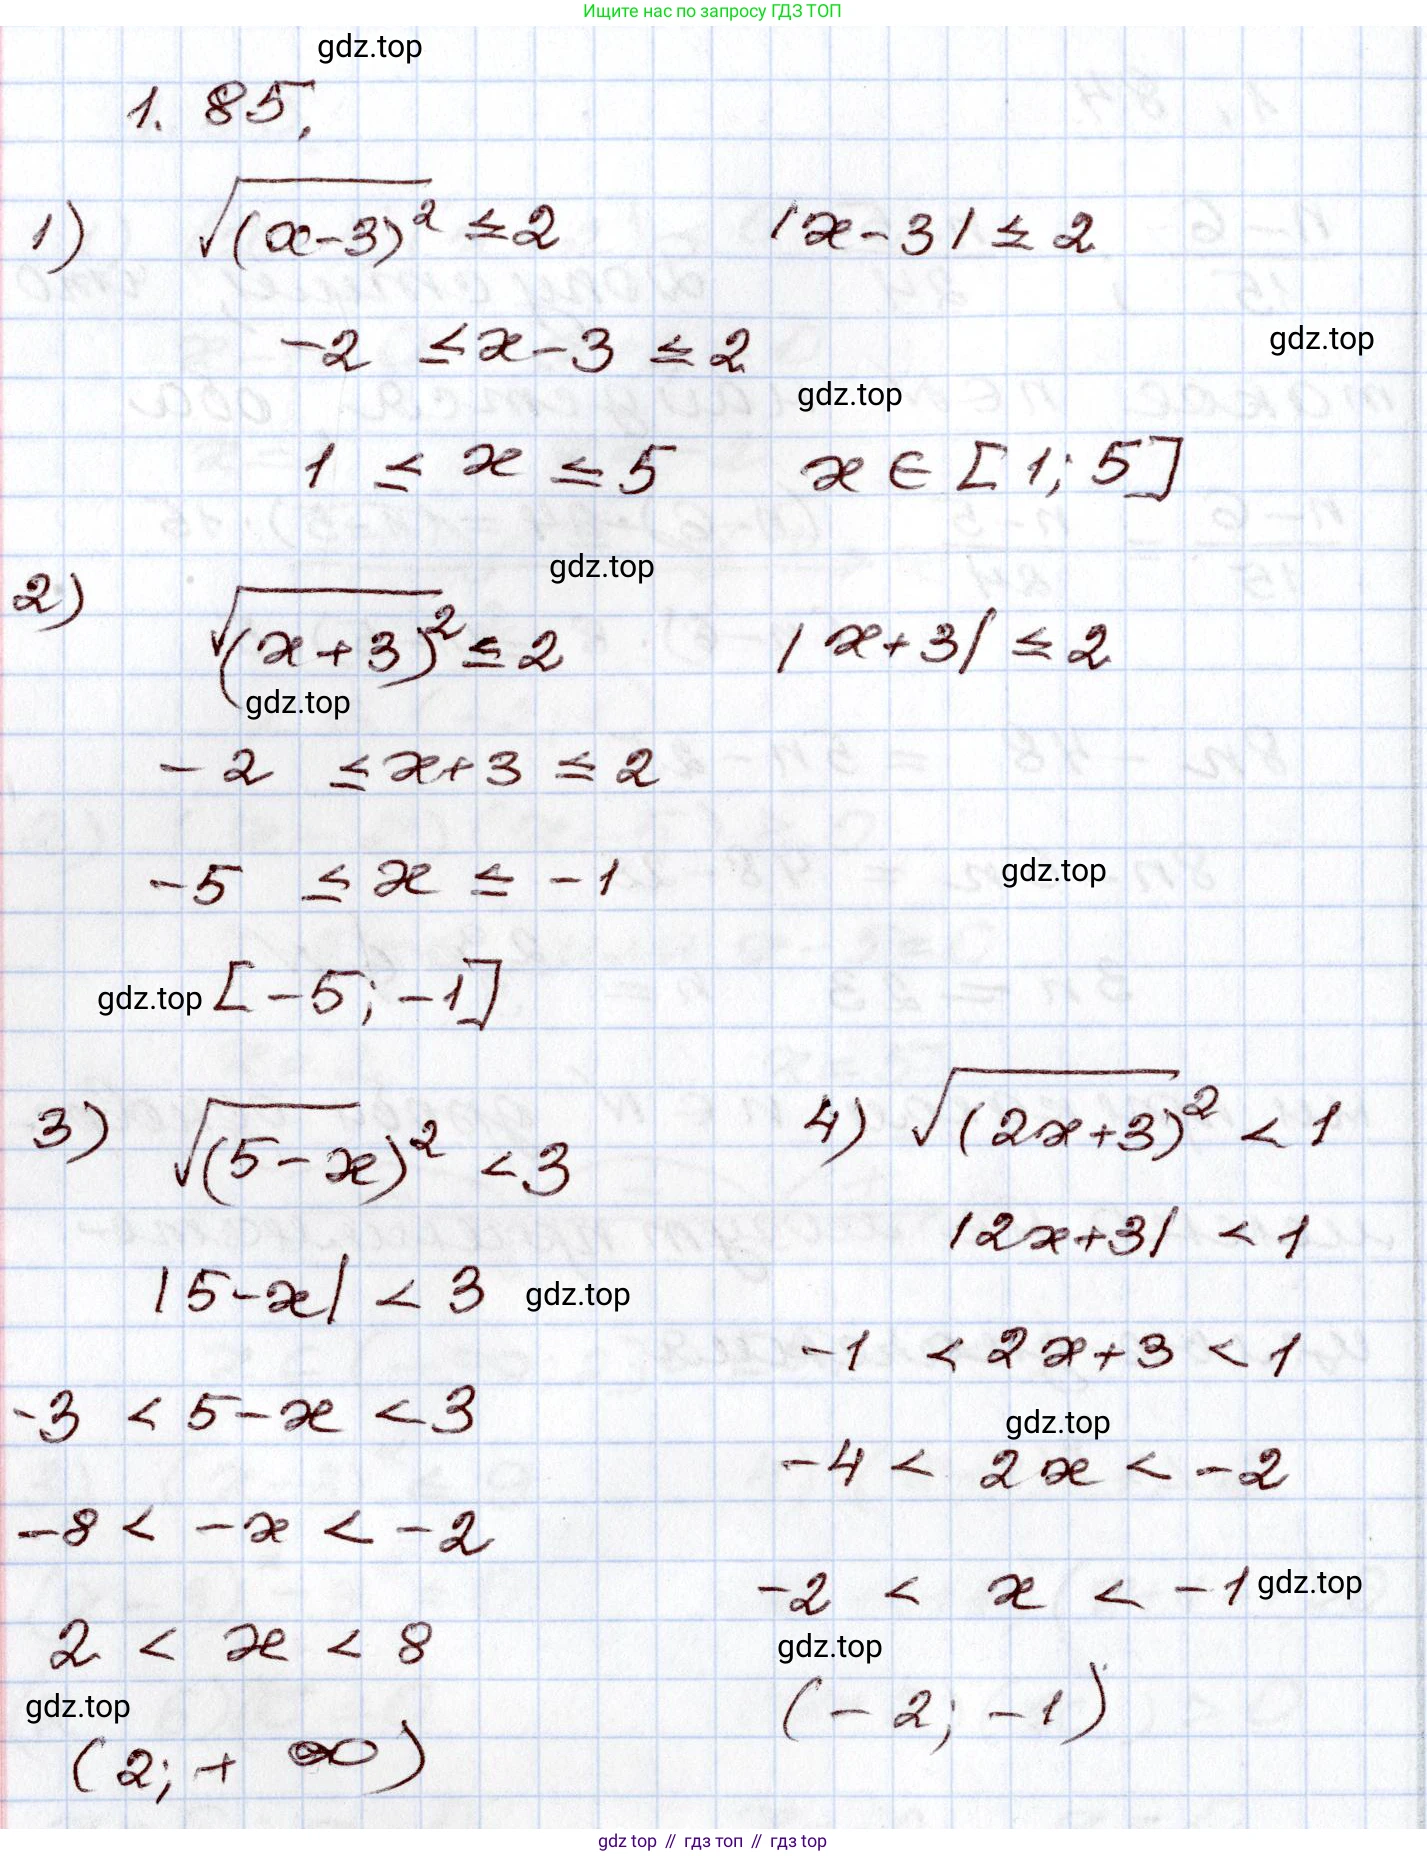 Ищите нас по запросу ГДЗ ТОП
gdz.top
1. 85.
1) √(x-3)² ≤ 2 |x-3| ≤ 2
-2 ≤ x-3 ≤ 2
gdz.top
gdz.top
1 ≤ x ≤ 5 x ∈ [1; 5]
gdz.top
2) √(x+3)² ≤ 2 |x+3| ≤ 2
gdz.top
-2 ≤ x+3 ≤ 2
-5 ≤ x ≤ -1
gdz.top
gdz.top [-5; -1]
3) √(5-x)² < 3
|5-x| < 3 gdz.top
-3 < 5-x < 3
-8 < -x < -2
2 < x < 8
gdz.top
(2; +∞)
4) √(2x+3)² < 1
|2x+3| < 1
-1 < 2x+3 < 1
gdz.top
-4 < 2x < -2
-2 < x < -1 gdz.top
gdz.top
(-2; -1)
gdz top // гдз топ // gdz top